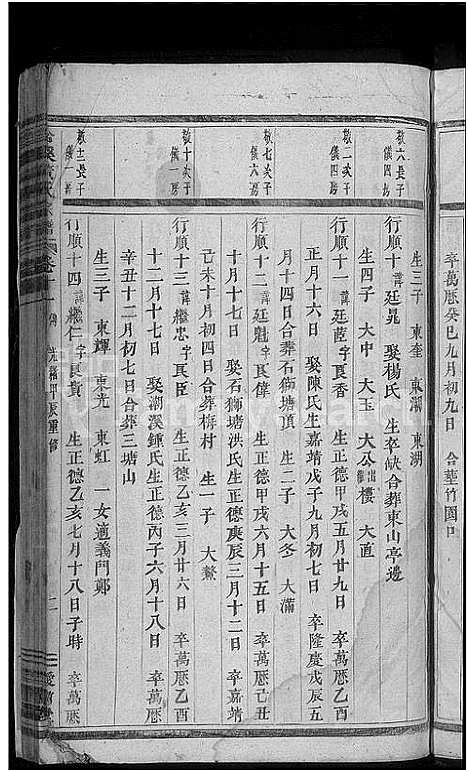 卒萬厯癸巳九月初九日 合葬竹園口
生三子 東奎 東潮 東湖
敬六長子
儀四房
行順十 諱廷晁 娶楊氏 生卒缺合葬東山亭邊
生四子 大中 大玉 大公出繼樓 大直
敬二次子
儀四房
行順十一 諱廷茝字良香 生正德甲戌五月廿九日 卒萬厯乙酉
正月十六日 娶陳氏生嘉靖戊子九月初七日 卒隆慶戊辰五
月十四日合葬石獅塘頂 生二子 大冬 大滿
敬七次子
儀六房
行順十二 諱廷魁字良偉 生正德甲戌六月廿六日 卒萬厯己丑
十月十七日 娶石獅塘洪氏生正德庚辰三月十二日 卒嘉靖
己未十月初四日合葬梅村 生一子 大鰲
敬十次子
儀一房
行順十三 諱繼忠字良臣 生正德乙亥三月廿六日 卒萬厯乙酉
十二月十七日 娶潮溪鍾氏生正德丙子六月十八日 卒萬厯
辛丑十二月初七日合葬三塘山
生三子 東輝 東光 東虹 一女適義門鄭
敬十二長子
儀一房
行順十四 諱繼仁字良貴 生正德乙亥七月十八日子時 卒萬厯
光緒甲辰重修
二